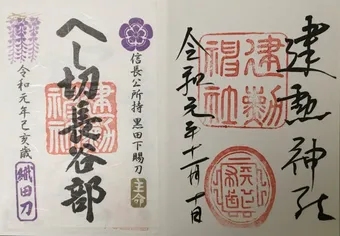 建勲神社
建勲神社
令和元年十一月十日
信長公所持 黒田下賜刀
主命
へし切長谷部
建勲神社
令和元年己亥歳
織田刀